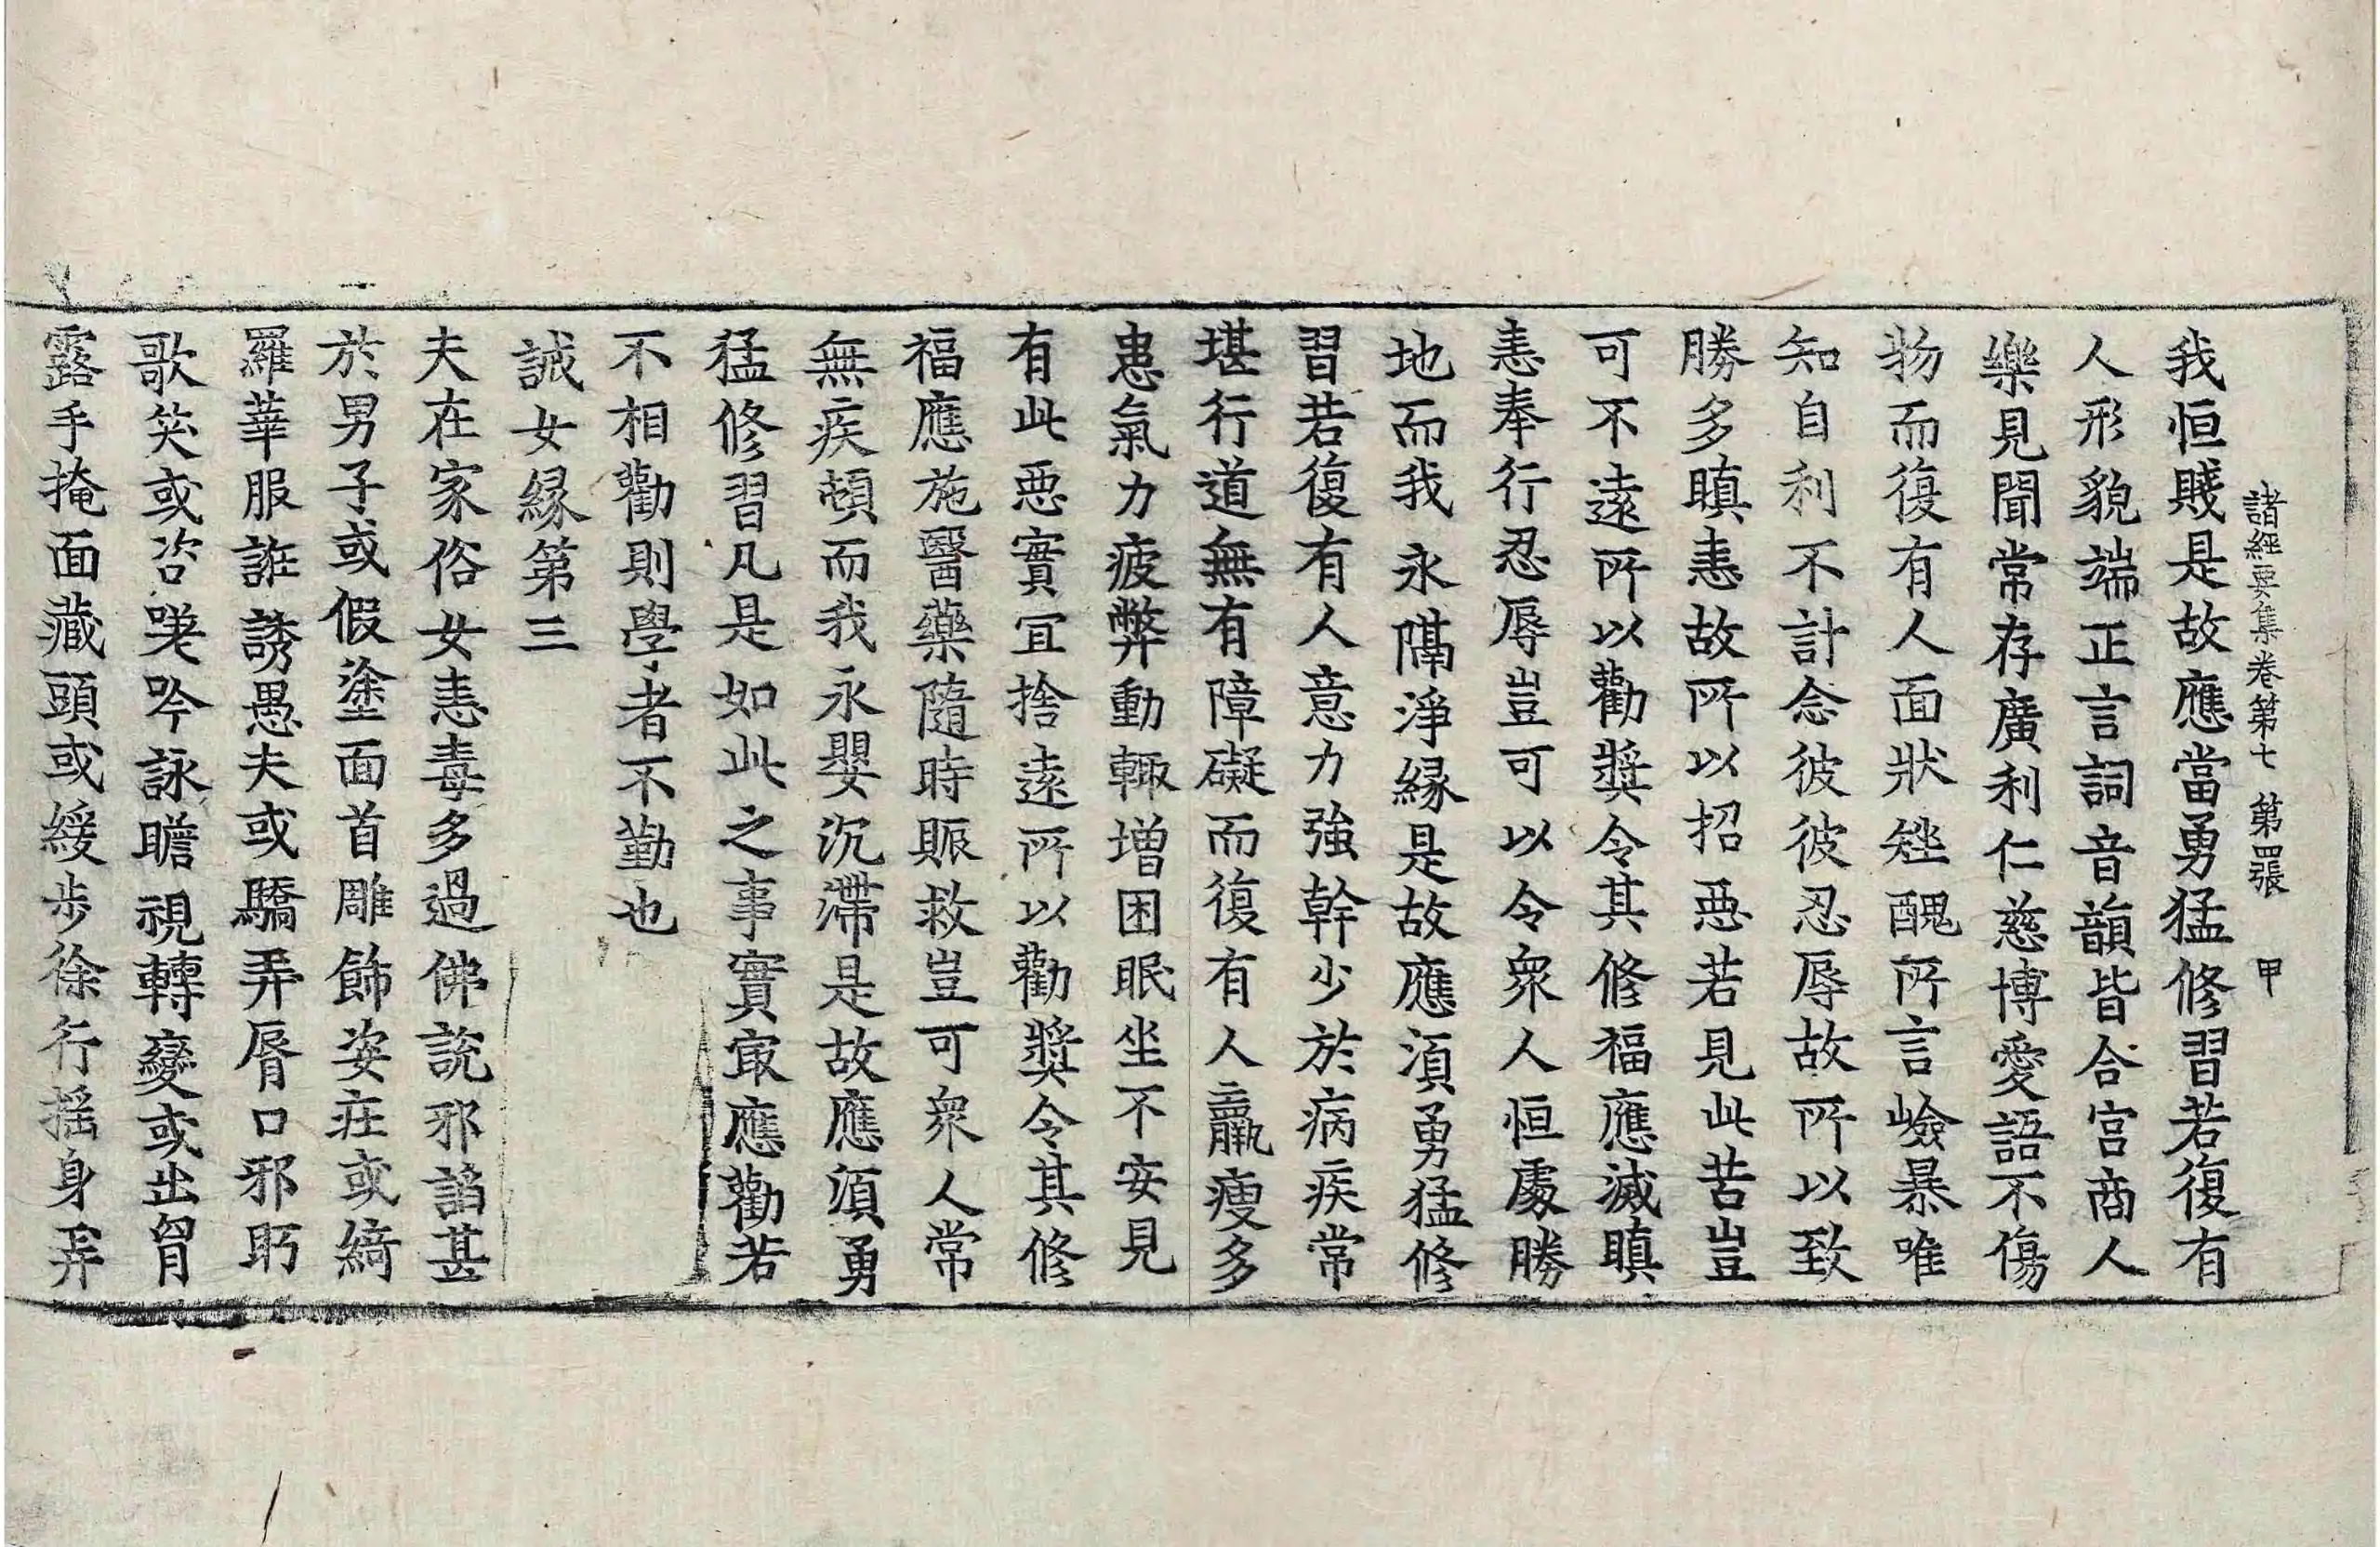 諸經要集卷第七 第四張 甲
我恒賤是故應當勇猛修習若復有
人形貌端正言詞音韻皆合宮商人
樂見聞常存廣利仁慈博愛語不傷
物而復有人面狀矬醜所言嶮暴唯
知自利不計念彼彼忍辱故所以致
勝多瞋恚故所以招惡若見此苦豈
可不遠所以勸奬令其修福應滅瞋
恚奉行忍辱豈可以令衆人恒處勝
地而我永隔淨縁是故應須勇猛修
習若復有人意力強幹少於病疾常
堪行道無有障礙而復有人羸瘦多
患氣力疲弊動輙增困眠坐不安見
有此惡實宜捨遠所以勸奬令其修
福應施醫藥隨時賑救豈可衆人常
無疾頓而我永嬰沉滯是故應須勇
猛修習凡是如此之事實㝡應勸若
不相勸則學者不勤也
誡女縁第三
夫在家俗女恚毒多過佛說邪謟甚
於男子或假塗面首雕飾姿𥚃或綺
羅華服誑誘愚夫或驕弄脣口邪眄
歌笑或咨嗟吟詠瞻視轉變或出胷
露手掩面藏頭或緩步徐行摇身弄